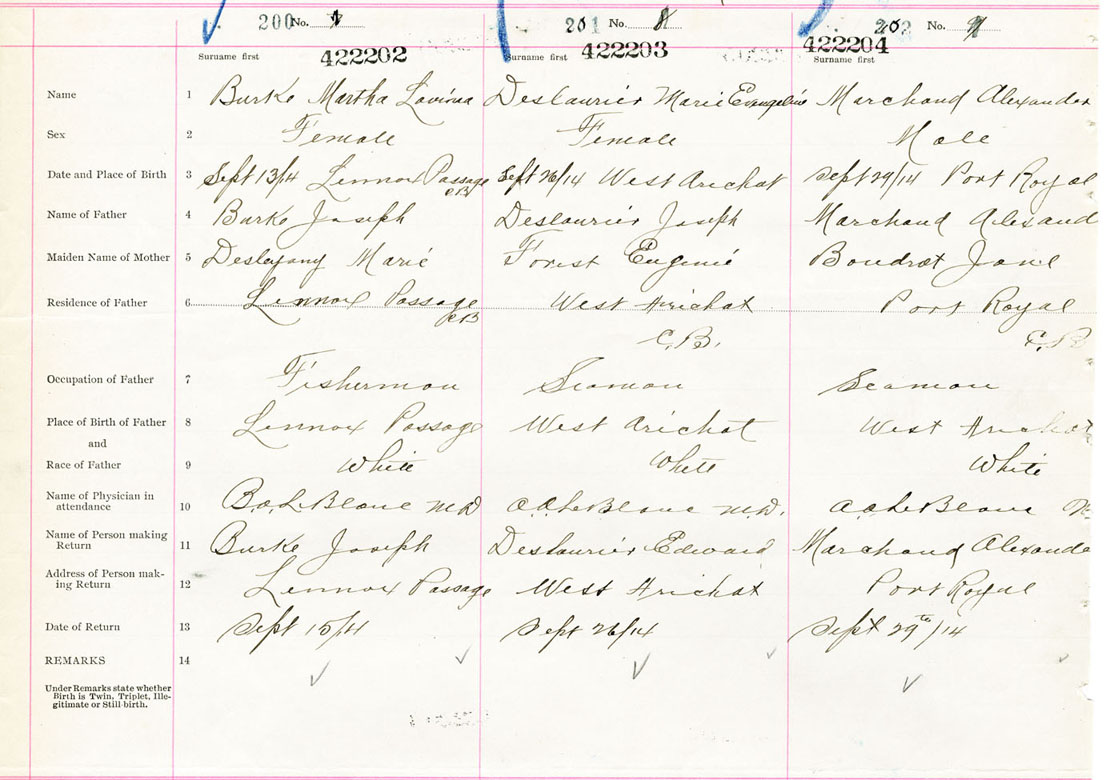 200 No. 7 201 No. 8 202 No. 9
Surname first 422202 Surname first 422203 422204 Surname first
Name 1 Burke Martha Lovina Deslaurier Marie Evangeline Marchand Alexander
Sex 2 Female Female Male
Date and Place of Birth 3 Sept 13/14 Lennox Passage Sept 26/14 West Arichat Sept 29/14 Port Royal
C.B.
Name of Father 4 Burke Joseph Deslaurier Joseph Marchand Alexand
Maiden Name of Mother 5 Marie Forest Eugenie Boudrot Jane
Residence of Father 6 Lennox Passage West Arichat Port Royal
C.B. C.B. C.B.
Occupation of Father 7 Fisherman Seaman Seaman
Place of Birth of Father 8 Lennox Passage West Arichat West Arichat
and
Race of Father 9 White White White
Name of Physician in
attendance 10 B.a. LeBlanc M.D. A.A. LeBlanc M.D. A.A. LeBlanc M
Name of Person making
Return 11 Burke Joseph Deslaurier Edward Marchand Alexande
Address of Person mak-
ing Return 12 Lennox Passage West Arichat Port Royal
Date of Return 13 Sept 15/14 Sept 26/14 Sept 29th/14
REMARKS 14
Under Remarks state whether
Birth is Twin, Triplet, Ille-
gitimate or Still-birth.